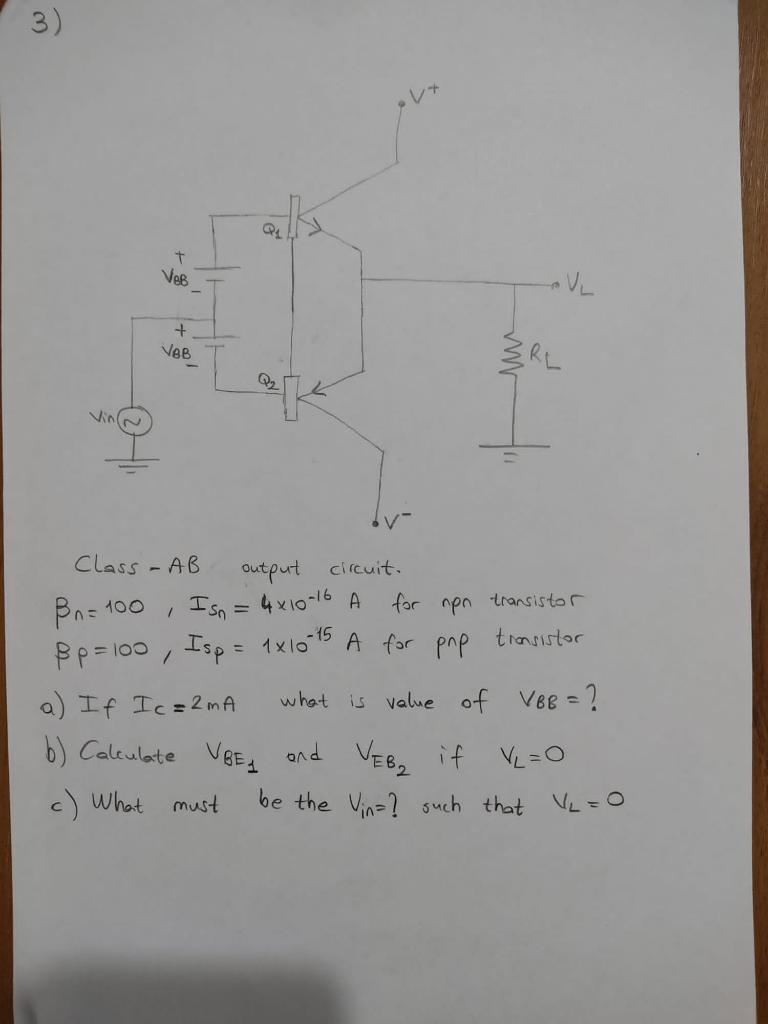 3)
V+
Q1
+
VBB
-
VL
+
VBB
-
RL
Q2
Vin
V-
Class - AB output circuit.
βn = 100 , ISn = 4x10^-16 A for npn transistor
βp = 100 , ISp = 1x10^-15 A for pnp transistor
a) If Ic = 2mA what is value of VBB = ?
b) Calculate VBE1 and VEB2 if VL = 0
c) What must be the Vin = ? such that VL = 0